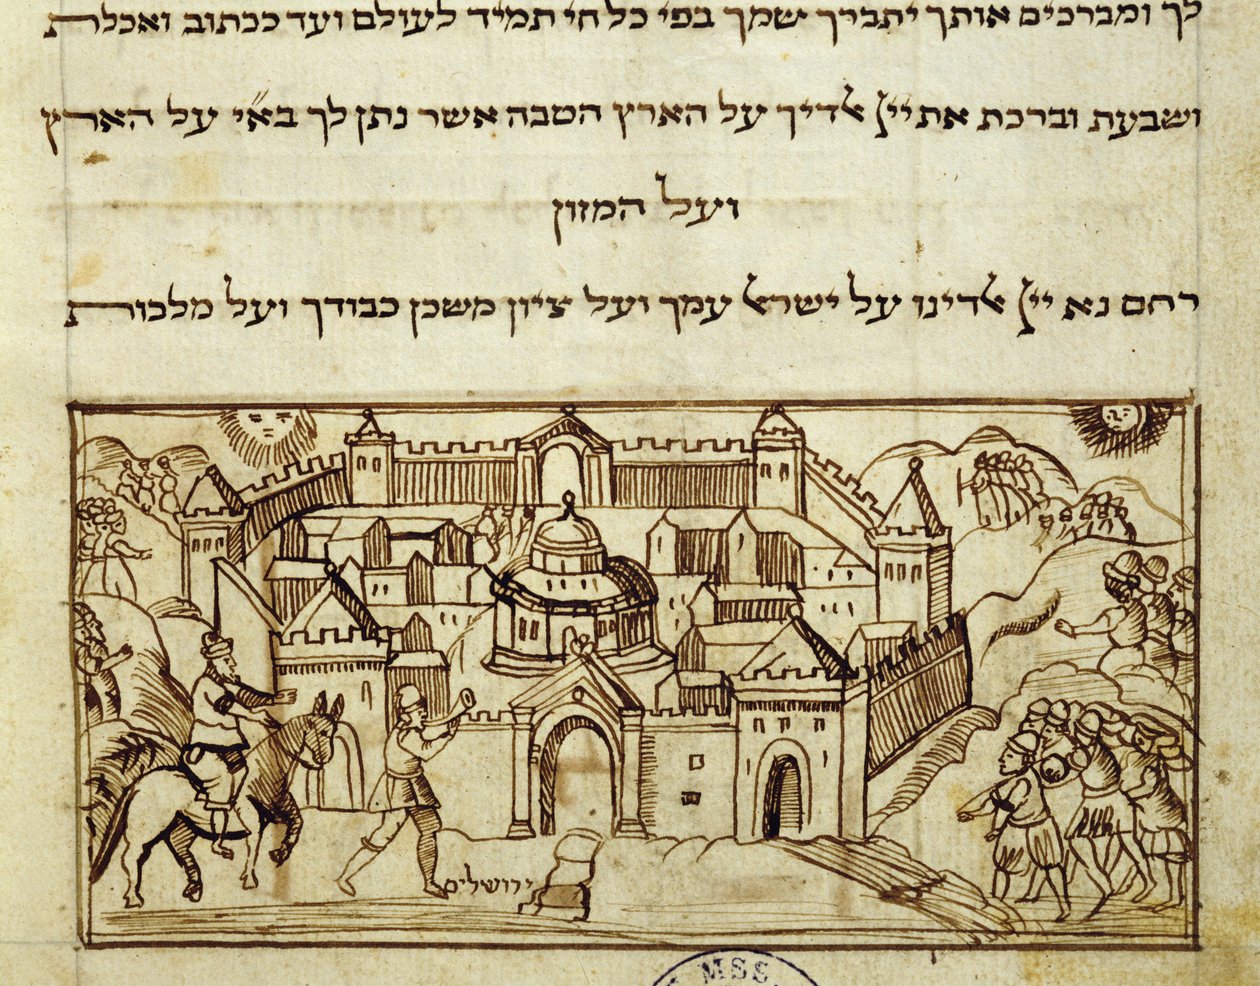 לך ומברכים אותך יתברך שמך בפי כל חי תמיד לעולם ועד ככתוב ואכלת
ושבעת וברכת את ייי אלדיך על הארץ הטבה אשר נתן לך בא״י על הארץ
ועל המזון
רחם נא ייי אלדינו על ישראל עמך ועל ציון משכן כבודך ועל מלכות
ירושלים
MSS.